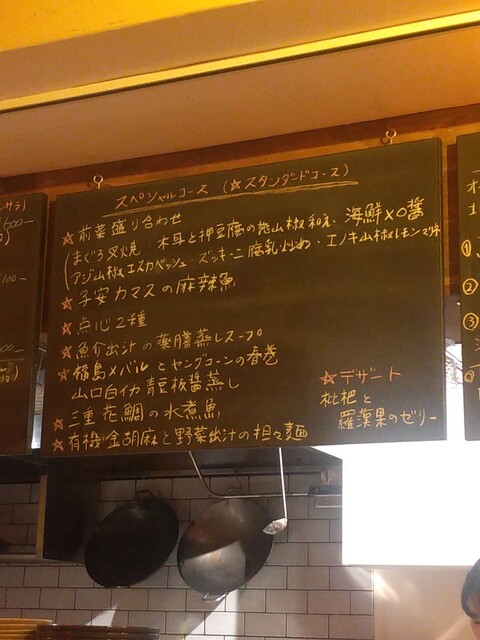 スペシャルコース (☆スタンダードコース)
☆前菜盛り合わせ
(まぐろ叉焼 木耳と押豆腐の山椒和え、海鮮XO醤
アジ山椒エスカベッシュ ズッキーニ腐乳炒め、エノキ山椒レモンマリネ
☆子安カマスの麻辣魚
☆点心2種
☆魚介出汁の薬膳蒸しスープ
☆福島メバルとヤングコーンの春巻
山口白イカ 青豆板醤蒸し
☆三重 花鯛の水煮魚
☆有機金胡麻と野菜出汁の担々麺
☆デザート
枇杷と
羅漢果のゼリー
①
②
③